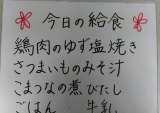 今日の給食
鶏肉のゆず塩焼き
さつまいものみそ汁
こまつなの煮びたし
ごはん 牛乳